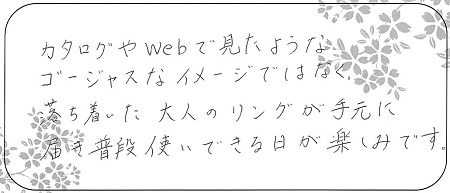 カタログやWebで見たような
ゴージャスなイメージではなく、
落ち着いた大人のリングが手元に
届き普段使いできる日が楽しみです。